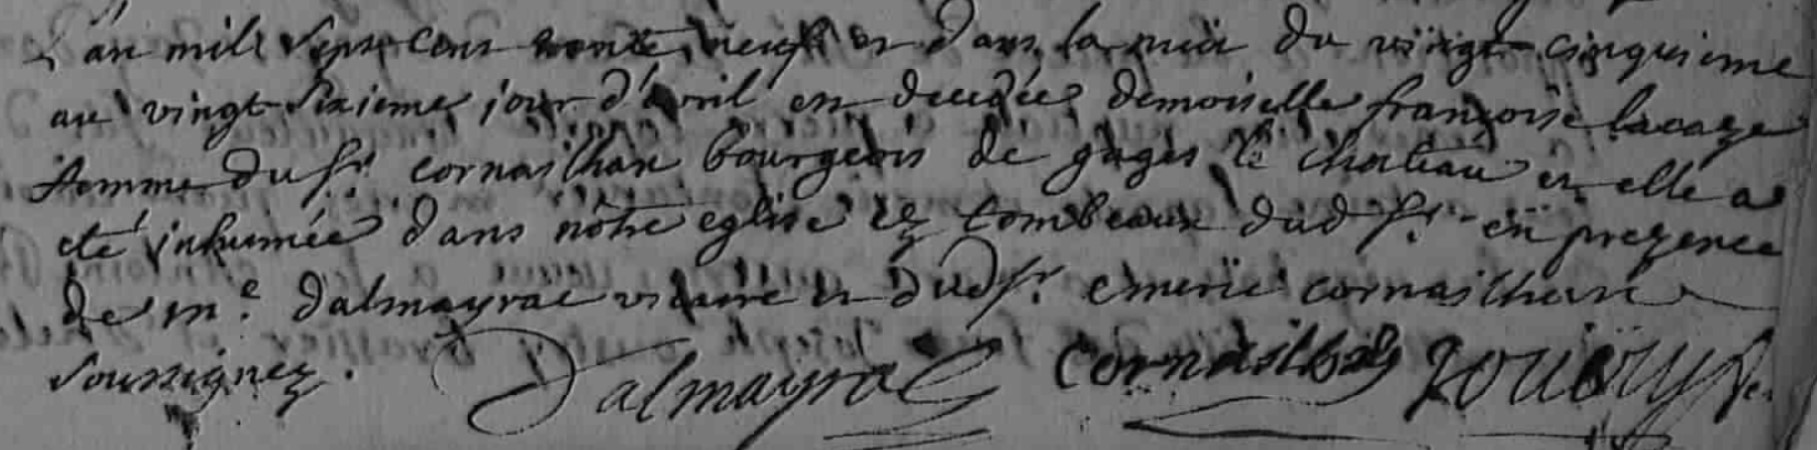 L'an mill sept cens trente neuf et dans la nuit du vingt cinquieme
au vingt sixieme jour d'avril est decedée demoiselle françoise lacaze
femme du sr. cornailhan bourgeois de gages le chateau et elle a
eté inhumée dans nôtre eglise ez tombeaux dud sr. en prezence
de me. dalmayrac vicaire et dud sr. emeric cornailhan
soussignez. Dalmayrac Cornailhan